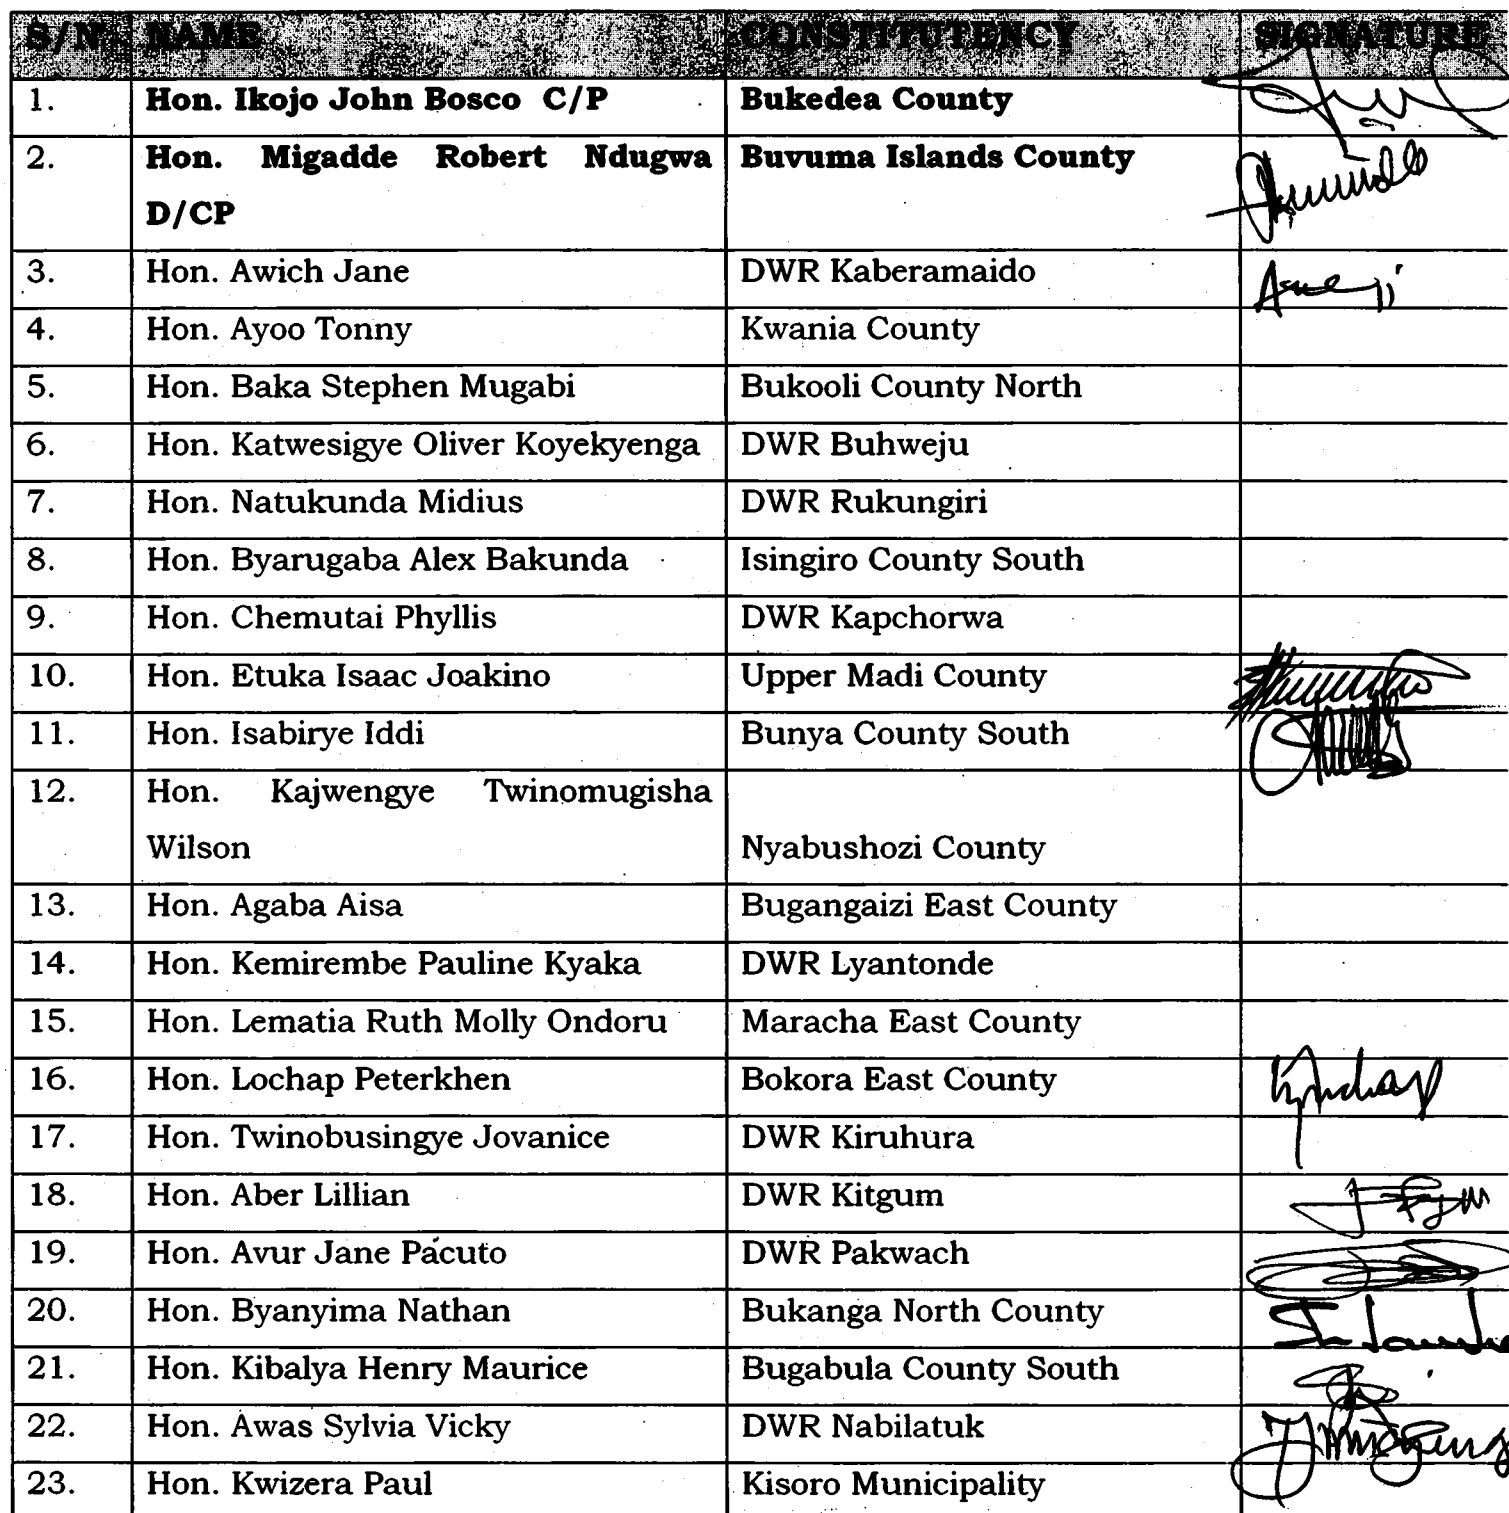 S/N NAME CONSTITUTENCY SIGNATURE
1. Hon. Ikojo John Bosco C/P Bukedea County
2. Hon. Migadde Robert Ndugwa Buvuma Islands County
D/CP
3. Hon. Awich Jane DWR Kaberamaido
4. Hon. Ayoo Tonny Kwania County
5. Hon. Baka Stephen Mugabi Bukooli County North
6. Hon. Katwesigye Oliver Koyekyenga DWR Buhweju
7. Hon. Natukunda Midius DWR Rukungiri
8. Hon. Byarugaba Alex Bakunda Isingiro County South
9. Hon. Chemutai Phyllis DWR Kapchorwa
10. Hon. Etuka Isaac Joakino Upper Madi County
11. Hon. Isabirye Iddi Bunya County South
12. Hon. Kajwengye Twinomugisha
Wilson Nyabushozi County
13. Hon. Agaba Aisa Bugangaizi East County
14. Hon. Kemirembe Pauline Kyaka DWR Lyantonde
15. Hon. Lematia Ruth Molly Ondoru Maracha East County
16. Hon. Lochap Peterkhen Bokora East County
17. Hon. Twinobusingye Jovanice DWR Kiruhura
18. Hon. Aber Lillian DWR Kitgum
19. Hon. Avur Jane Pacuto DWR Pakwach
20. Hon. Byanyima Nathan Bukanga North County
21. Hon. Kibalya Henry Maurice Bugabula County South
22. Hon. Awas Sylvia Vicky DWR Nabilatuk
23. Hon. Kwizera Paul Kisoro Municipality